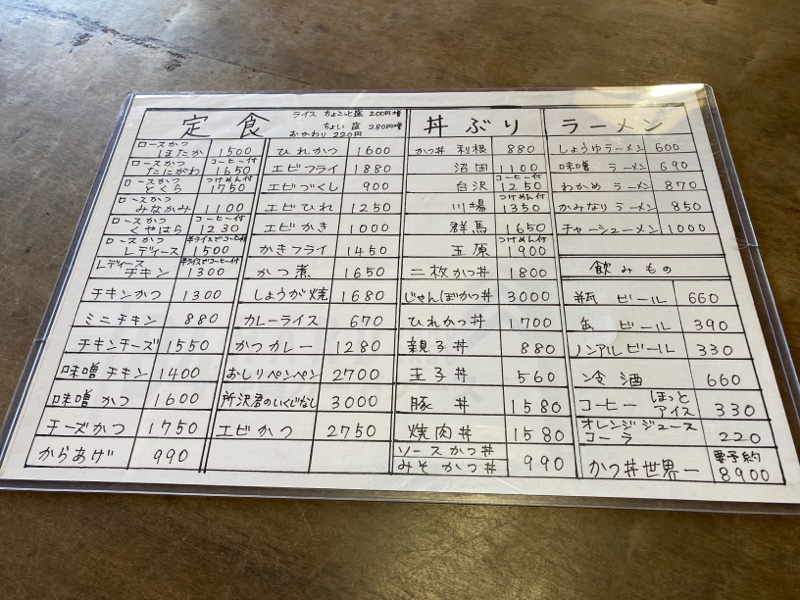 定食
ライス ちょこっと盛 200円増
ちょい 盛 280円増
おかわり 220円
ロースかつ
しまたか 1500
ロースかつ コーヒー付
たにがわ 1650
ロースかつ つけめん付
とくら 1750
ロースかつ
みなかみ 1100
ロースかつ コーヒー付
くやはら 1230
ロースかつ 半ライスでコーヒー付
レディース 1500
レディース 半ライスでコーヒー付
チキン 1300
チキンかつ 1300
ミニチキン 880
チキンチーズ 1550
味噌チキン 1400
味噌かつ 1600
チーズかつ 1750
からあげ 990
ひれかつ 1600
エビフライ 1880
エビづくし 900
エビひれ 1250
エビかき 1000
かきフライ 1450
かつ煮 1650
しょうが焼 1680
カレーライス 670
かつカレー 1280
おしりペンペン 2700
所沢君のいくじなし 3000
エビかつ 2750
丼ぶり
かつ丼 利根 880
沼田 1100
白沢 コーヒー付 1250
川場 つけめん付 1350
群馬 1650
玉原 つけめん付 1900
二枚かつ丼 1800
じゃんぼかつ丼 3000
ひれかつ丼 1700
親子丼 880
玉子丼 560
豚丼 1580
焼肉丼 1580
ソースかつ丼
みそかつ丼 990
ラーメン
しょうゆラーメン 600
味噌 ラーメン 690
わかめ ラーメン 870
かみなりラーメン 850
チャーシューメン 1000
飲みもの
瓶 ビール 660
缶 ビール 390
ノンアルビール 330
冷酒 660
コーヒー ほっと アイス 330
オレンジジュース
コーラ 220
かつ丼世界一 要予約 8900